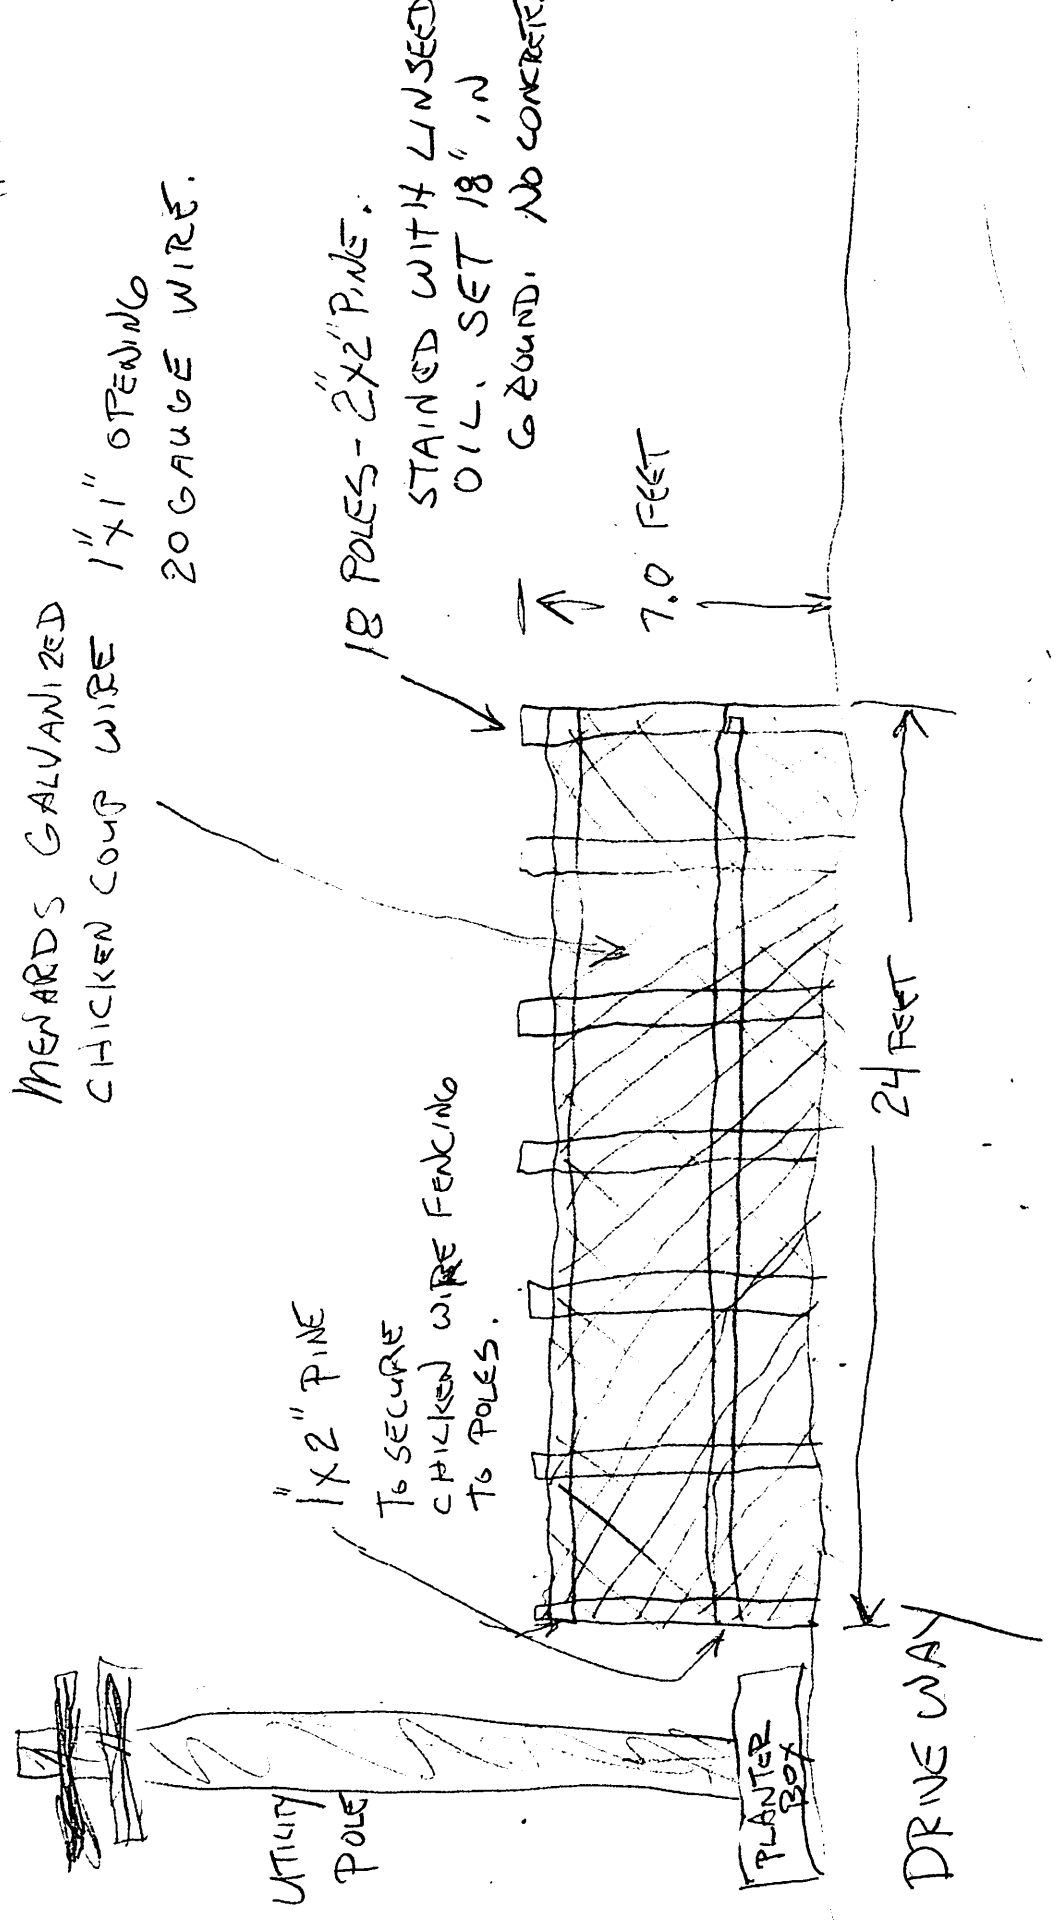 MENARDS GALVANIZED
CHICKEN COUP WIRE 1"X1" OPENING
20 GAUGE WIRE.
18 POLES - 2"X2" PINE.
STAINED WITH LINSEED
OIL. SET 18" IN
GROUND. NO CONCRETE.
1"X2" PINE
TO SECURE
CHICKEN WIRE FENCING
TO POLES.
7.0 FEET
24 FEET
UTILITY
POLE
PLANTER
BOX
DRIVE WAY